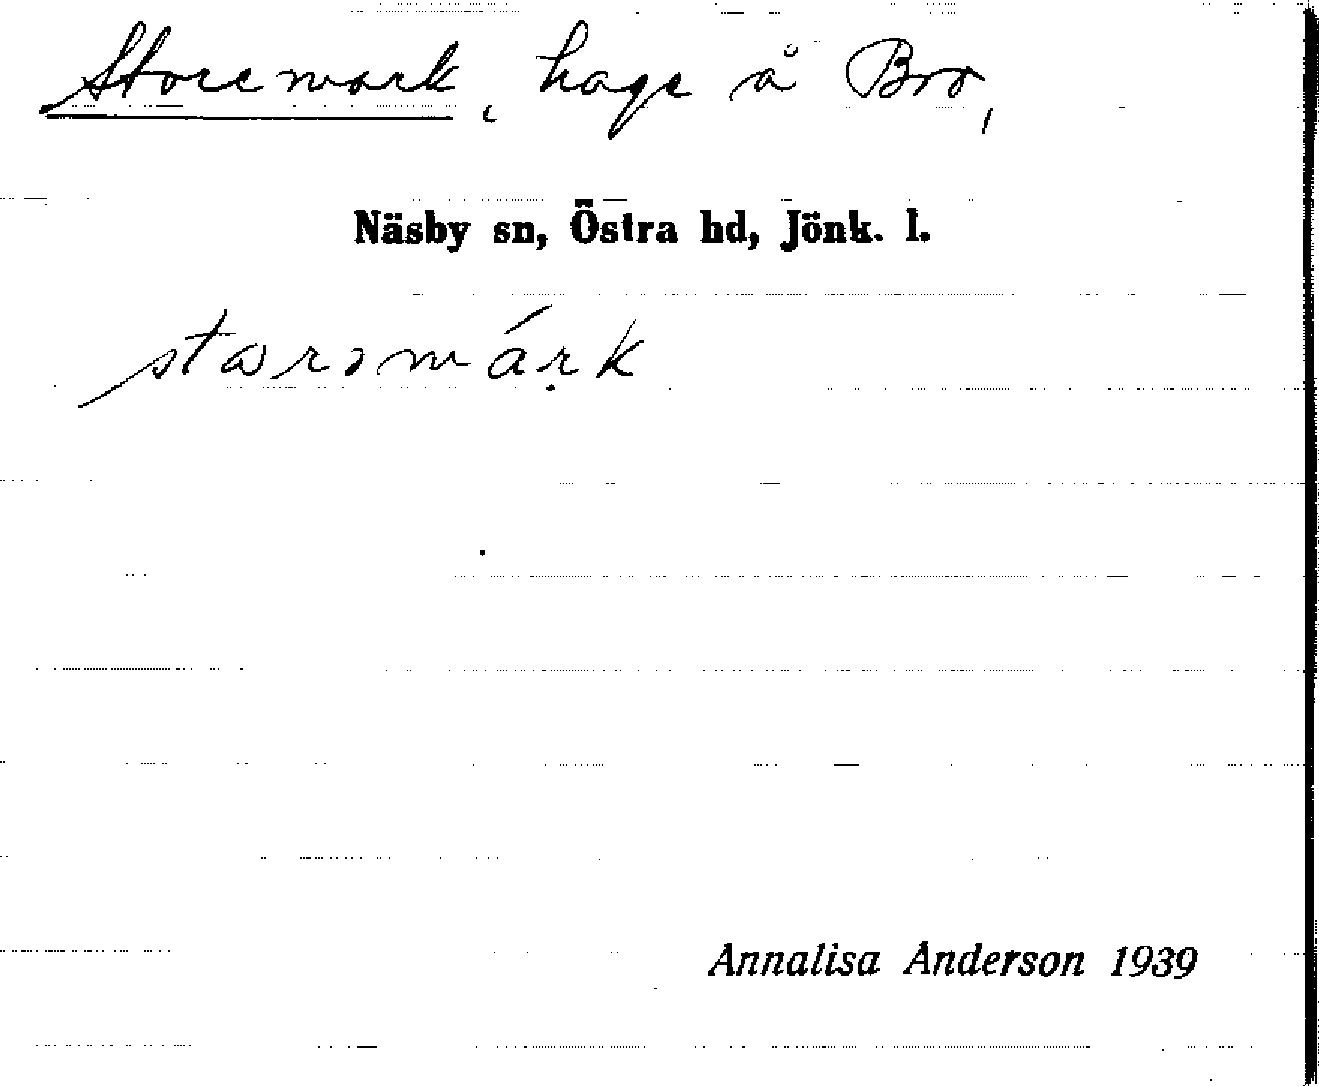 Storemark, hage å Bro,
Näsby sn, Östra hd, Jönk. l.
starəmárk
Annalisa Anderson 1939